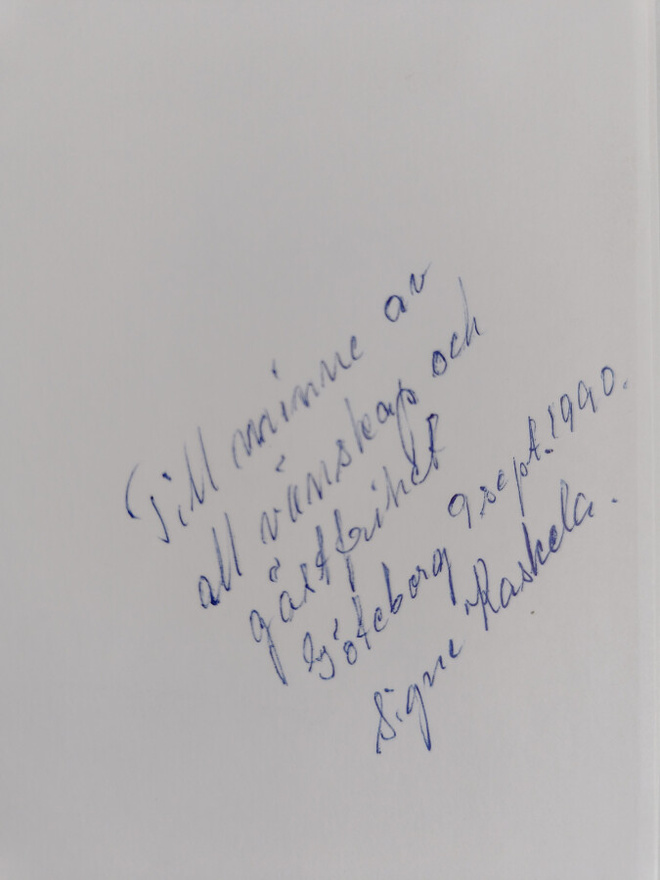 Till minne av
all vänskap och
gästfrihet
Göteborg 9 sept. 1990.
Signe Raskela.